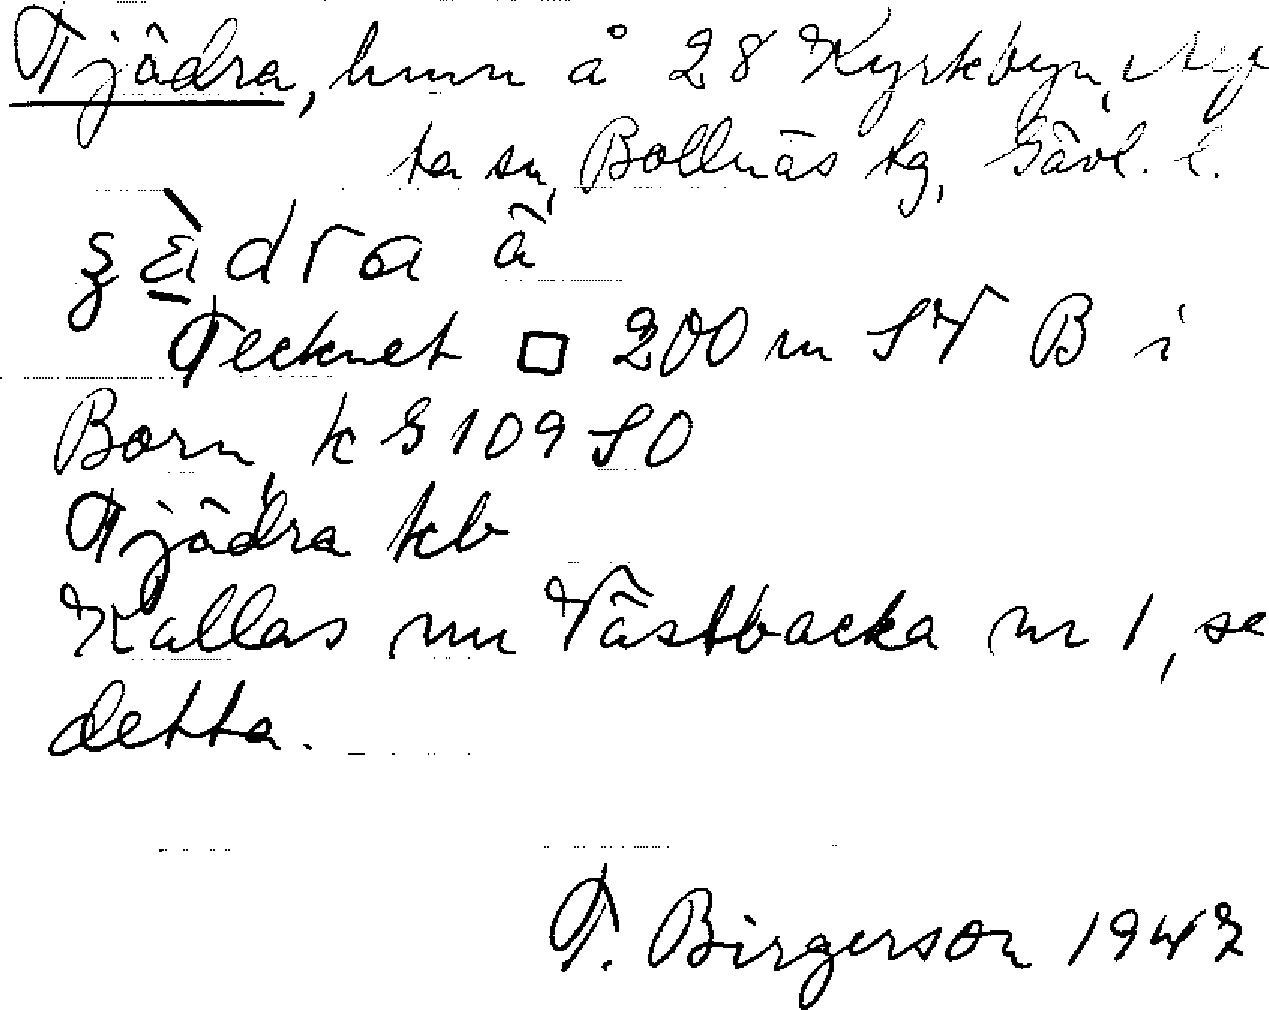 Tjädra, hmn å 28 Kyrkbyn, Alf-
ta sn, Bollnäs tg, Gävl. l.
dra ā
Tecknet □ 200 m SV B i
Born, k G 109 SO
Tjädra kb
Kallas nu Västbacka nr 1, se
detta.
T. Birgerson 1947